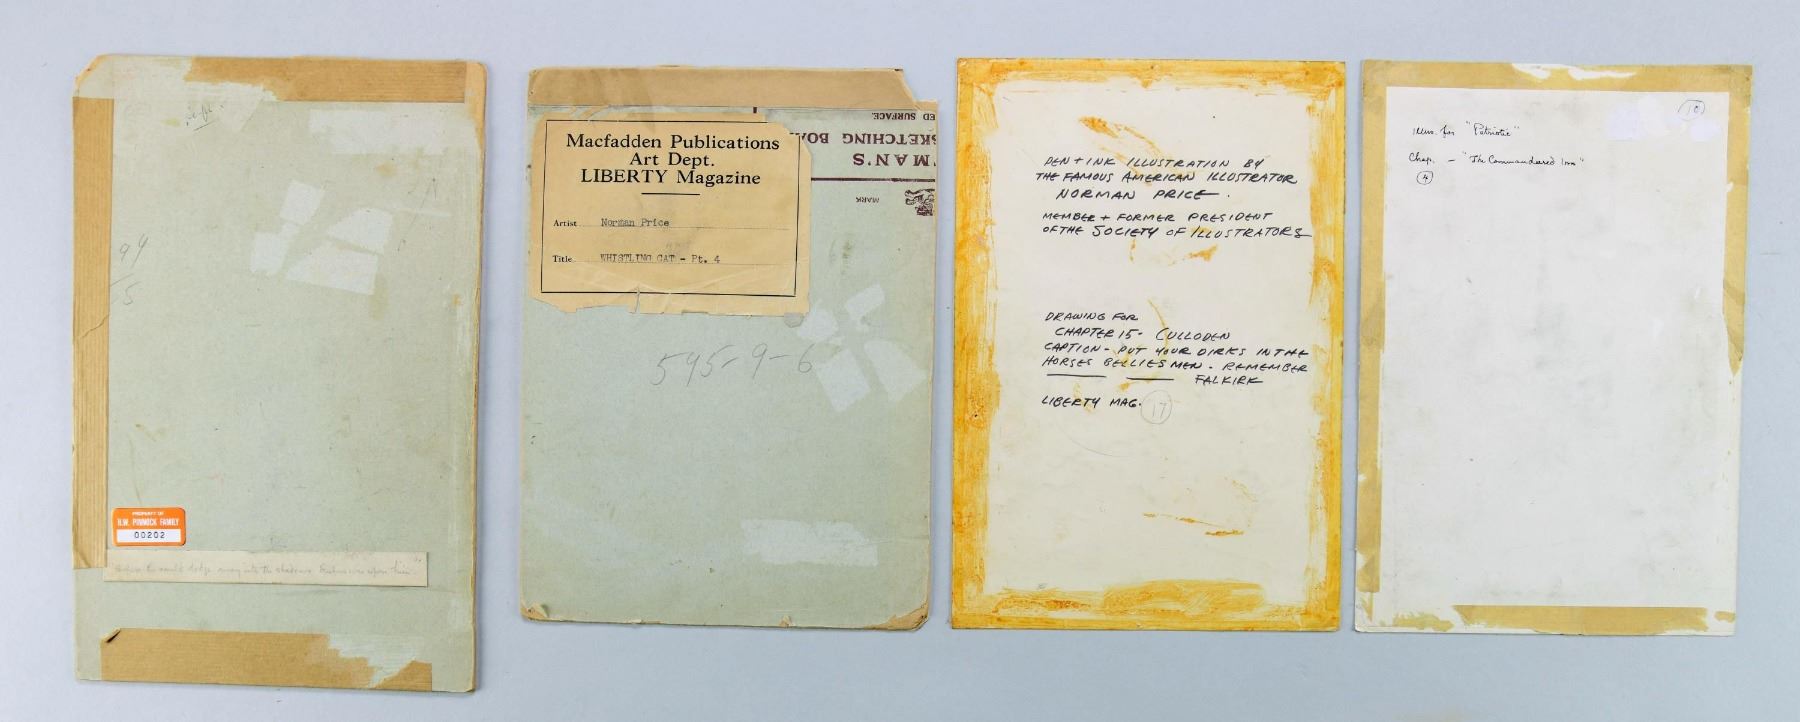 94
5
PROPERTY OF
H.W. PINNOCK FAMILY
00202
away into the shadows
Macfadden Publications
Art Dept.
LIBERTY Magazine
Artist Norman Price
Title WHISTLING CAT - Pt. 4
ED SURFACE.
SKETCHING BOA
'MAN'S
MARK
595-9-6
PEN + INK ILLUSTRATION BY
THE FAMOUS AMERICAN ILLUSTRATOR
NORMAN PRICE.
MEMBER + FORMER PRESIDENT
OF THE SOCIETY OF ILLUSTRATORS
DRAWING FOR
CHAPTER 15- CULLODEN
CAPTION - PUT YOUR DIRKS IN THE
HORSES BELLIES MEN - REMEMBER
FALKIRK
LIBERTY MAG. 17
10
Illus. for "Patriotic"
Chap. - "The Commandeered Inn"
4